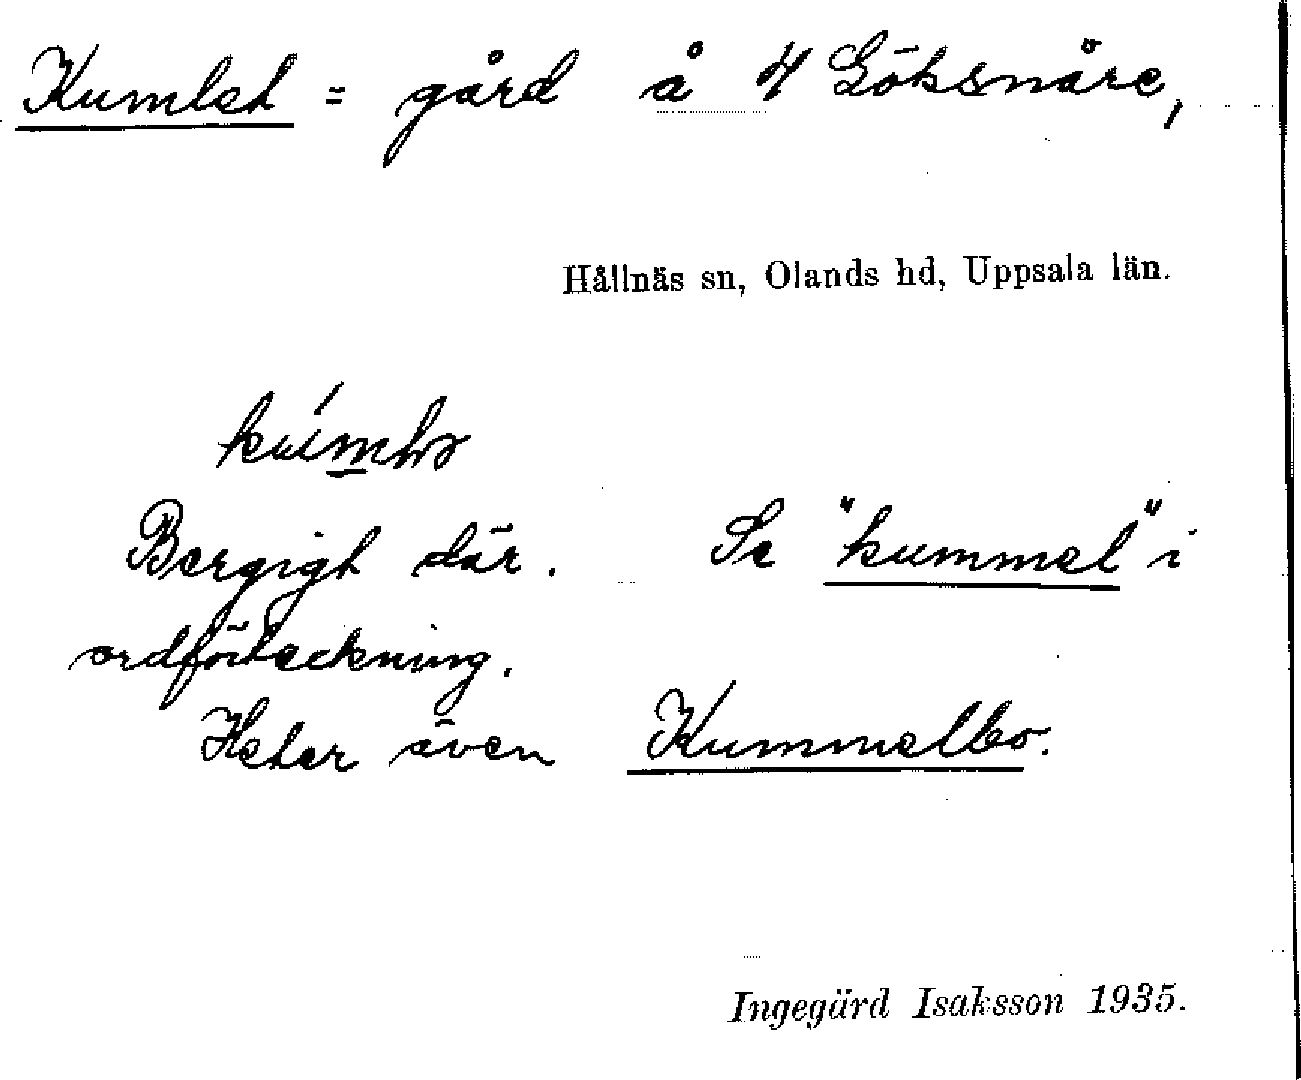 Kumlet = gård å 4 Göksnåre,
Hållnäs sn, Olands hd, Uppsala län.
Bergigt där. Se "kummel" i
ordförteckning.
Heter även Kummelbo.
Ingegärd Isaksson 1935.